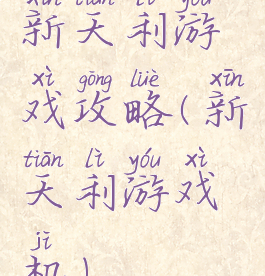 xīn tiān lì yóu
新天利游
xì gōng lüè xīn
戏攻略(新
tiān lì yóu xì
天利游戏
jī
机)